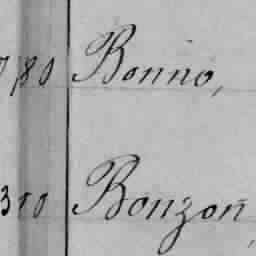 780 Bonino,
310 Bonzon,